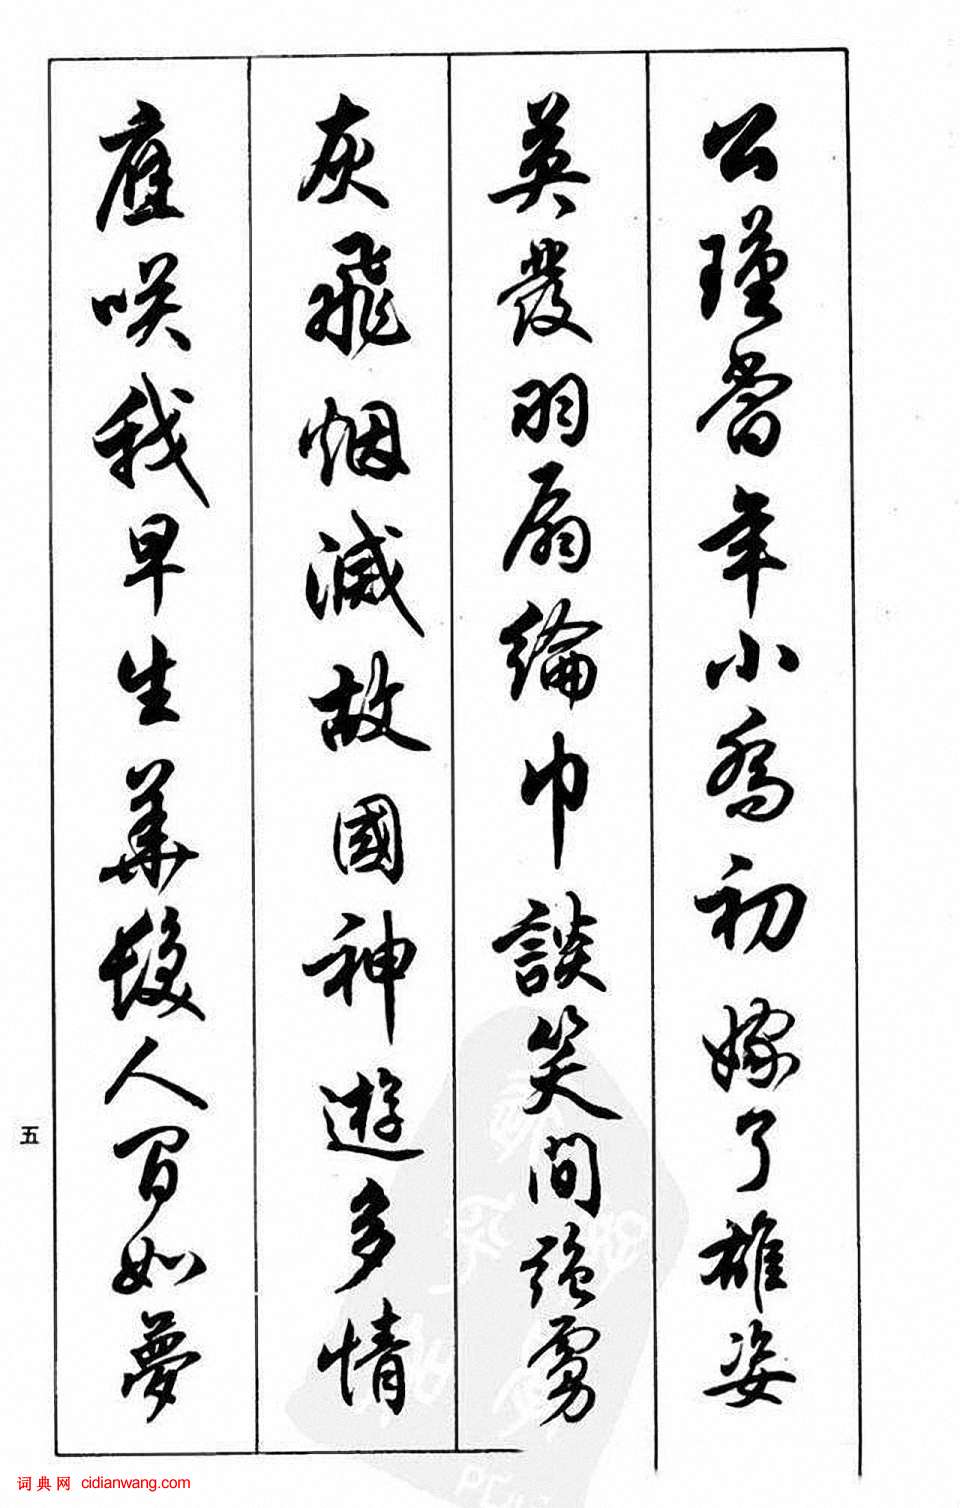 公瑾當年小喬初嫁了雄姿
英發羽扇綸巾談笑間強虜
灰飛烟滅故國神遊多情
應咲我早生華髮人間如夢
五
词典网 cidianwang.com